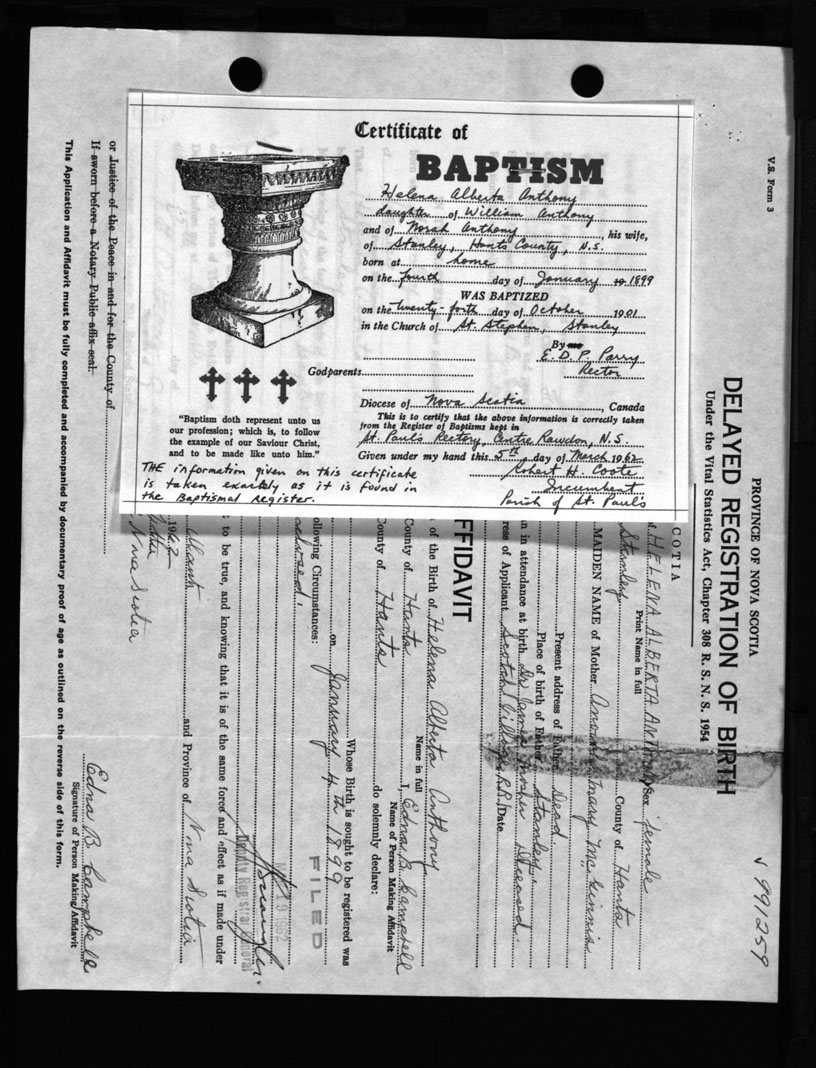 Certificate of
BAPTISM
Helena Alberta Anthony
daughter of William Anthony
and of Norah Anthony, his wife,
of Stanley, Hants County, N.S.
born at home
on the fourth day of January 19 1899
WAS BAPTIZED
on the twenty-forth day of October 1901
in the Church of St. Stephen, Stanley
By me
E. D. P. Parry
Rector
Godparents
Diocese of Nova Scotia, Canada
This is to certify that the above information is correctly taken
from the Register of Baptisms kept in
St. Paul's Rectory, Centre Rawdon, N.S.
Given under my hand this 5th day of March 1962
Robert H. Coote
Incumbent
Parish of St. Paul's
"Baptism doth represent unto us
our profession; which is, to follow
the example of our Saviour Christ,
and to be made like unto him."
THE information given on this certificate
is taken exactly as it is found in
the Baptismal Register.
V.S. Form 3
PROVINCE OF NOVA SCOTIA
DELAYED REGISTRATION OF BIRTH
Under the Vital Statistics Act, Chapter 308 R. S. N. S. 1954
√ 991259
COTIA
HELENA ALBERTA ANTHONY Sex female
Print Name in full
Stanley County of Hants
MAIDEN NAME of Mother
Present address of Father Dead.
Place of birth of Father Stanley.
n in attendance at birth
ress of Applicant Scotch Village R.R. Date
FFIDAVIT
of the Birth of Helena Alberta Anthony
Name in full
County of Hants I, Edna B. Campbell
Name of Person Making Affidavit
County of Hants do solemnly declare:
Whose Birth is sought to be registered was
on January 4th 1899
ollowing Circumstances:
FILED
19 1962
Deputy Registrar General
t to be true, and knowing that it is of the same force and effect as if made under
and Province of Nova Scotia
1962
Nova Scotia
Edna B. Campbell
Signature of Person Making Affidavit
or Justice of the Peace in and for the County of
If sworn before a Notary Public affix seal.
This Application and Affidavit must be fully completed and accompanied by documentary proof of age as outlined on the reverse side of this form.